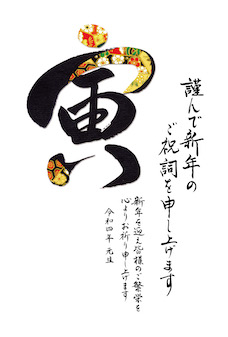 寅
謹んで新年の
ご祝詞を申し上げます
新年を迎え皆様のご繁栄を
心よりお祈り申し上げます
令和四年 元旦